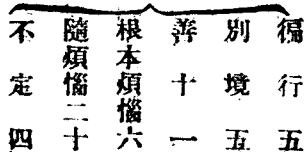 徧行五
別境五
善十一
根本煩惱六
隨煩惱二十
不定四